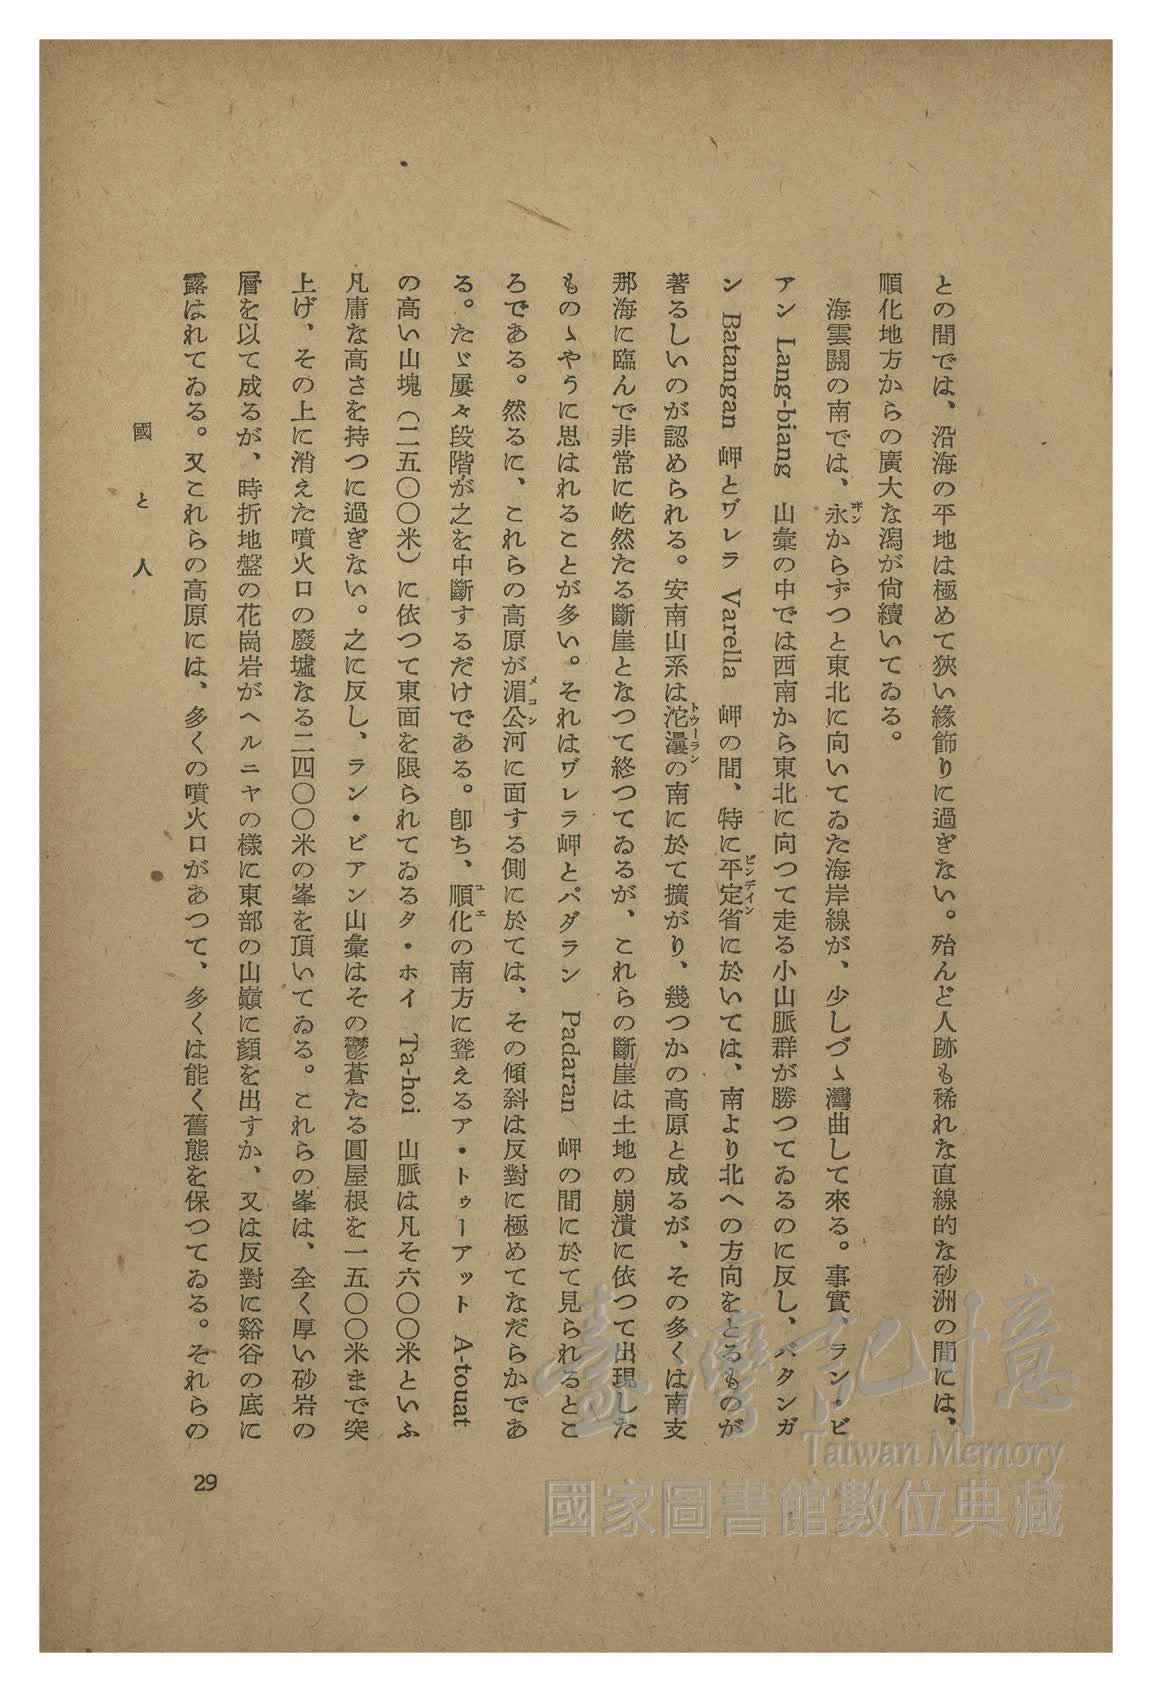 との間では、沿海の平地は極めて狹い緣飾りに過ぎない。殆んど人跡も稀れな直線的な砂洲の間には、
順化地方からの廣大な潟が尙續いてゐる。
海雲關の南では、永からずつと東北に向いてゐた海岸線が、少しづゝ灣曲して來る。事實、ラン・ビ
アン Lang-biang 山彙の中では西南から東北に向つて走る小山脈群が勝つてゐるのに反し、バタンガ
ン Batangan 岬とヷレラ Varella 岬の間、特に平定省に於いては、南より北への方向をとるものが
著るしいのが認められる。安南山系は沱㶞の南に於て擴がり、幾つかの高原と成るが、その多くは南支
那海に臨んで非常に屹然たる斷崖となつて終つてゐるが、これらの斷崖は土地の崩潰に依つて出現した
ものゝやうに思はれることが多い。それはヷレラ岬とパダラン Padaran 岬の間に於て見られるとこ
ろである。然るに、これらの高原が湄公河に面する側に於ては、その傾斜は反對に極めてなだらかであ
る。たゞ屢々段階が之を中斷するだけである。卽ち、順化の南方に聳えるア・トゥーアット A-touat
の高い山塊(二五〇〇米)に依つて東面を限られてゐるタ・ホイ Ta-hoi 山脈は凡そ六〇〇米といふ
凡庸な高さを持つに過ぎない。之に反し、ラン・ビアン山彙はその鬱蒼たる圓屋根を一五〇〇米まで突
上げ、その上に消えた噴火口の廢墟なる二四〇〇米の峯を頂いてゐる。これらの峯は、全く厚い砂岩の
層を以て成るが、時折地盤の花崗岩がヘルニヤの樣に東部の山巓に顏を出すか、又は反對に谿谷の底に
露はれてゐる。又これらの高原には、多くの噴火口があつて、多くは能く舊態を保つてゐる。それらの
國と人
29
臺灣記憶
Taiwan Memory
國家圖書館數位典藏